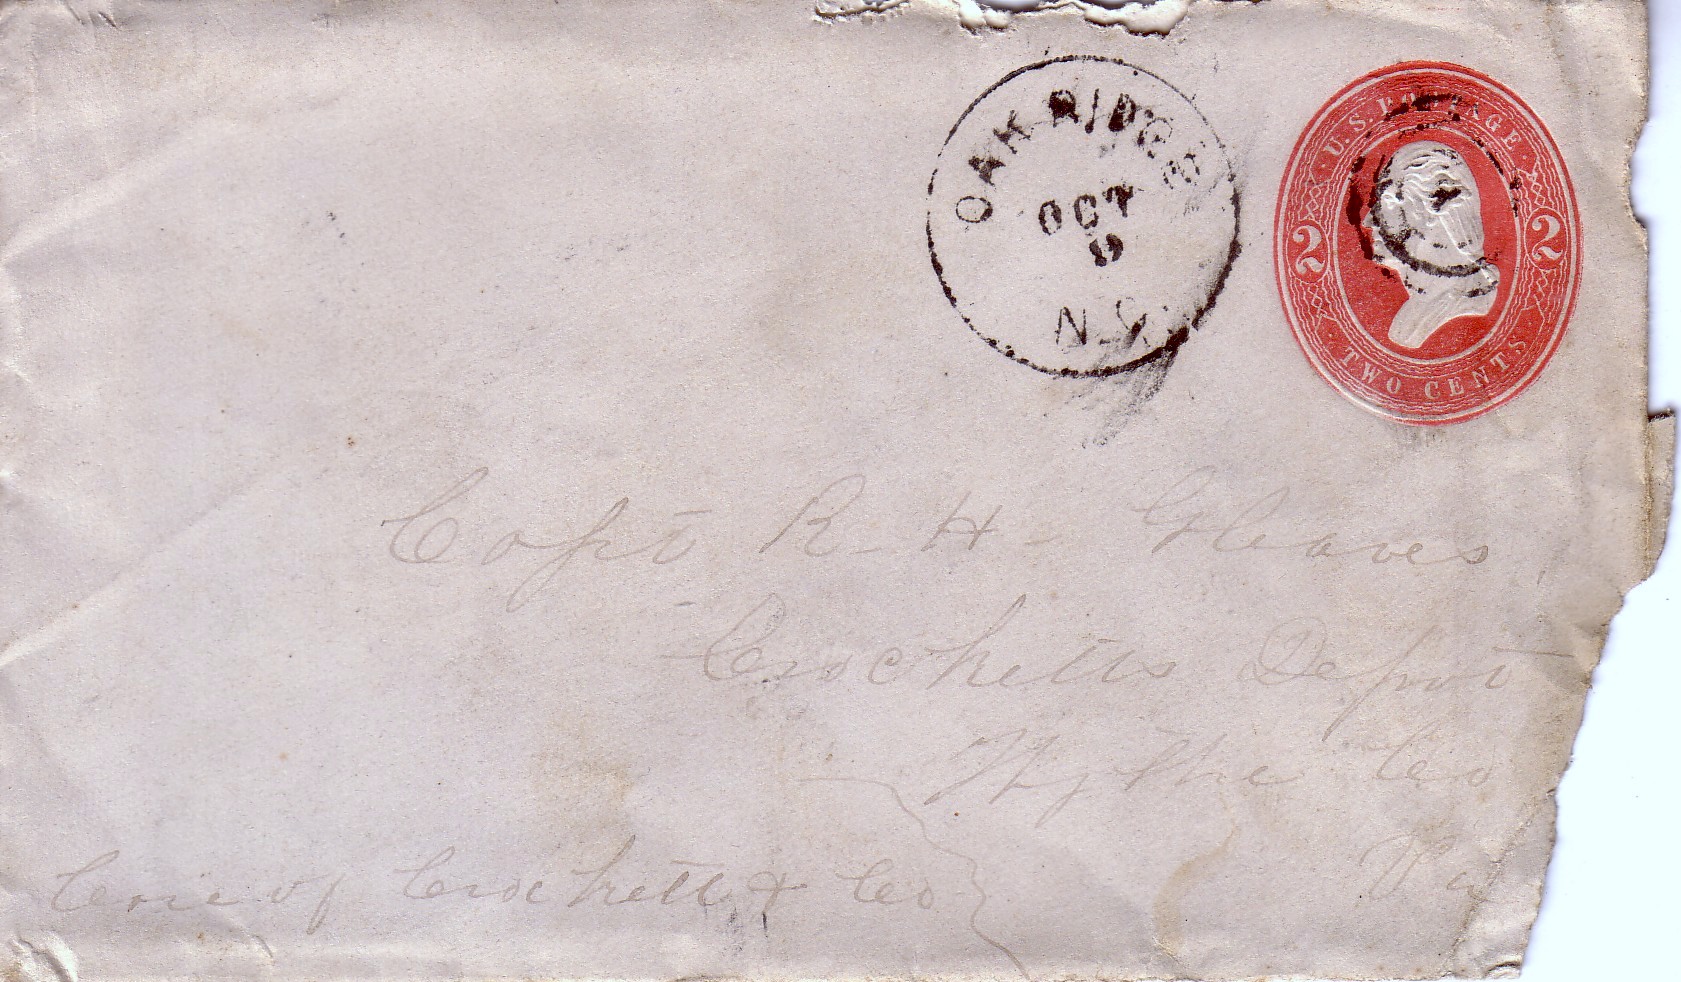 OAK RIDGE
OCT
9
N.C.
U.S. POSTAGE
2 2
TWO CENTS
Capt R-H- Gleaves
Crocketts Depot
Wythe Co
Va
Care of Crockett & Co